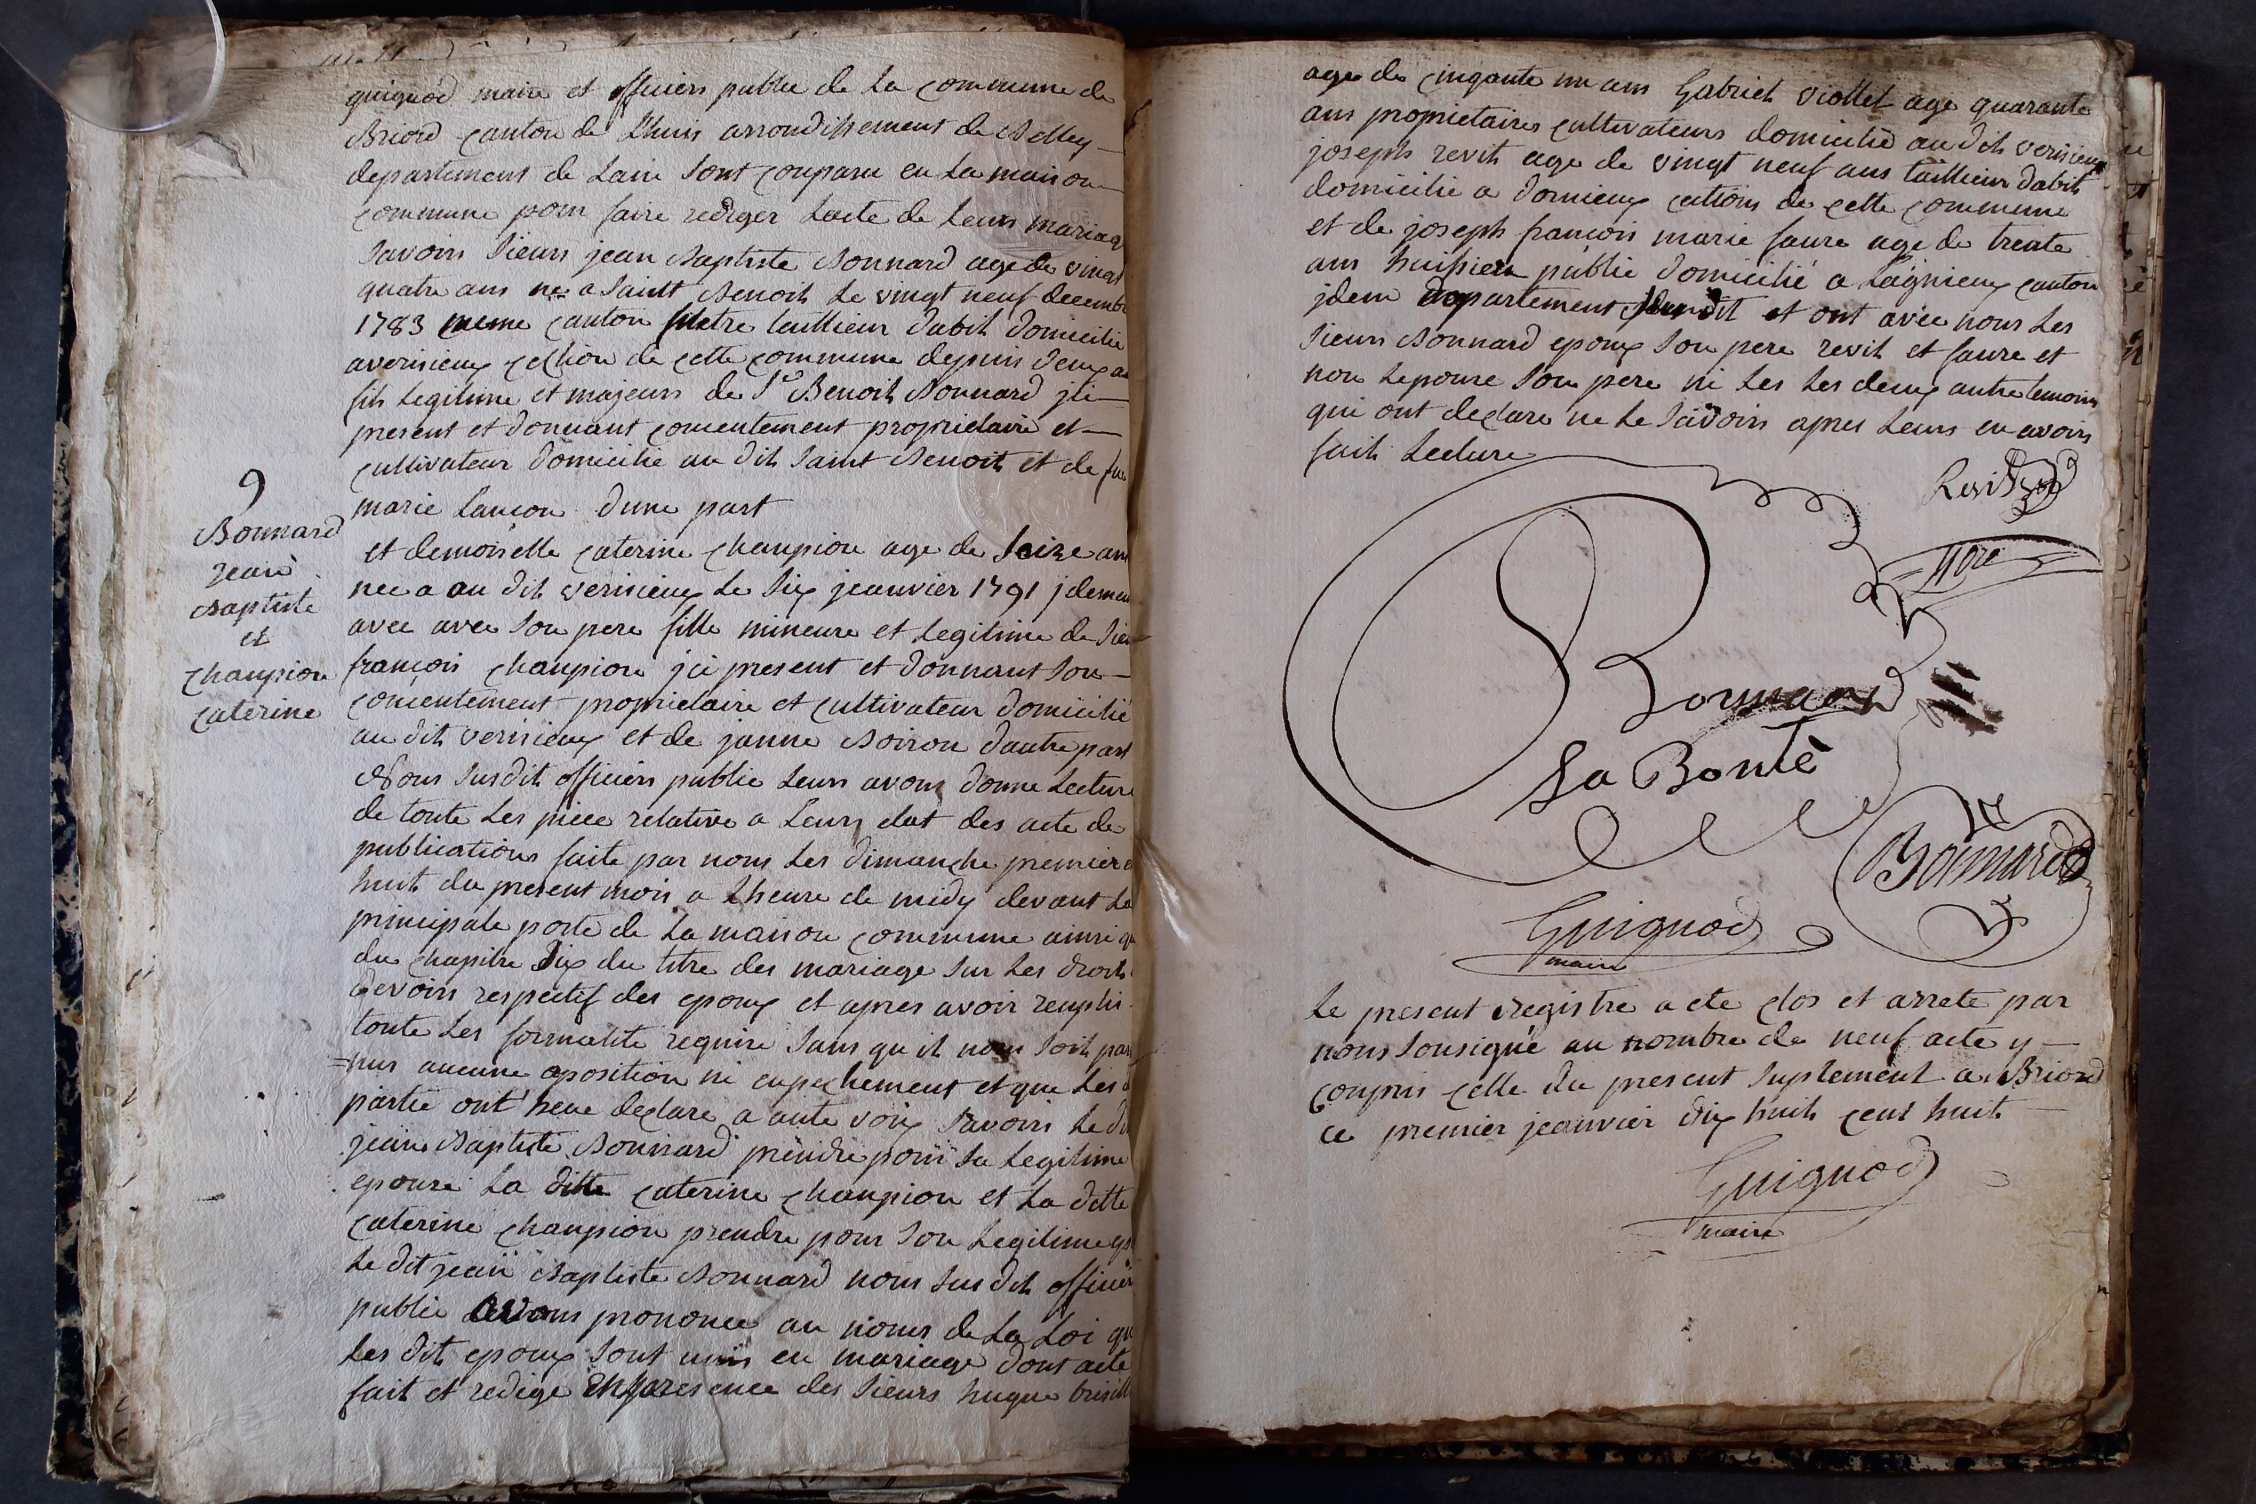 9
Bonnard
jean
Baptiste
et
champion
caterine
guignod maire et officiers public de la commune de
Briord canton de Lhuis arrondissement de Belley
departement de Lain sont conparu en la maison
commune pour faire rediger lacte de leurs mariag
savoirs sieurs jean Baptiste Bonnard age de vingt
quatre ans ne a saint Benoit le vingt neuf decemb
1783 meme canton taillieur dabit domicilie
a verisieux cection de cette commune depuis deux an
fils legitime et majeurs de Sr Benoit Bonnard
present et donnant concentement proprietaire et
cultivateur domicilie au dit saint Benoit et de fue
marie lançon dune part
et demoiselle caterine chanpion age de seize ans
nee a au dit verisieux le six jeanvier 1791 jdemeu
avec avec son pere fille mineure et legitime de sieu
françois chanpion jci present et donnant son
concentement proprietaire et cultivateur domicilié
au dit verisieux et de janne Boiron dautre part
Nous susdit officiers public leurs avons donne lecture
de toute les piece relative a leurs etat des acte de
publications faite par nous les dimanche premier e
huit du present mois a lheure de midy devant la
principale porte de la maison commune ainsi q
du chapitre six du titre des mariage sur les droits
devoirs respectif des epoux et apres avoir renpli
toute les formalité require sans qu il nous soit par
=nus aucune oposition ni enpechement et que les
partie ont heue declare a aute voix savoirs le di
jean Baptiste Bonnard prendre pour sa legitime
epouse la ditte caterine chanpion et la ditte
caterine chanpion prendre pour son legitime ep
le dit jean Baptiste Bonnard nous sus dit officier
public avons prononcé au noms de la Loi qu
les dit epoux sont unis en mariage dont acte
fait et redige en presence des sieurs hugue
age de cinqante un ans Gabriel viollet age quarante
ans proprietaires cultivateurs domicilié au dit verisieux
joseph revit age de vingt neuf ans taillieur dabit
domicilié a dornieux cections de cette commune
et de joseph françois marie faure age de trente
ans huissier public domicilié a Lagnieux canton
jdem departement susdit et ont avec nous les
sieurs Bonnard epoux son pere revit et faure et
non lepouse son père ni les les deux autre temoins
qui ont declare ne le savoirs apres leurs en avoirs
fait lecture
Revit
Bonnard
la Bontè
Bonnard
Guignod
maire
Le present registre a ete clos et arrete par
nous sousigné au nombre de neuf acte y
conpris celle du present suplement a Briord
ce premier jeanvier dix huit cent huit
Guignod
maire